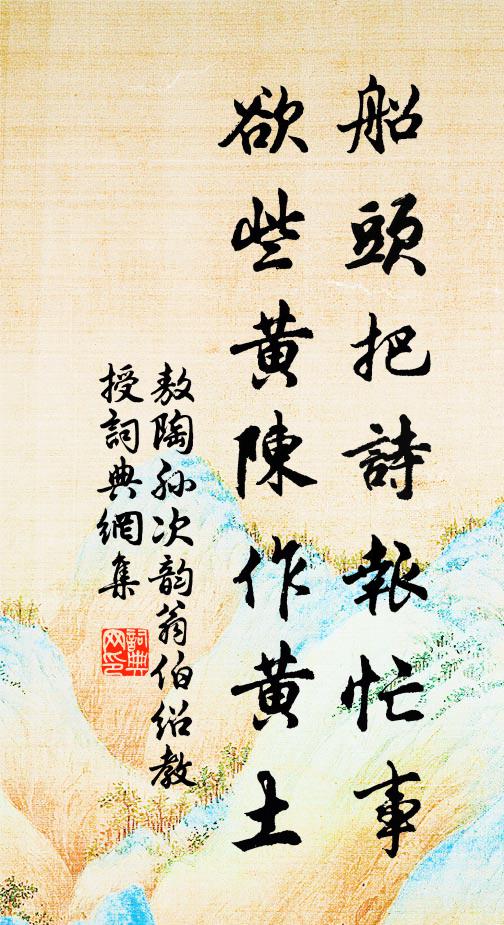 船頭把詩報忙事
欲些黃陳作黃土
敖陶孫次韵翁伯绍教
授詞典網集
詞典網印